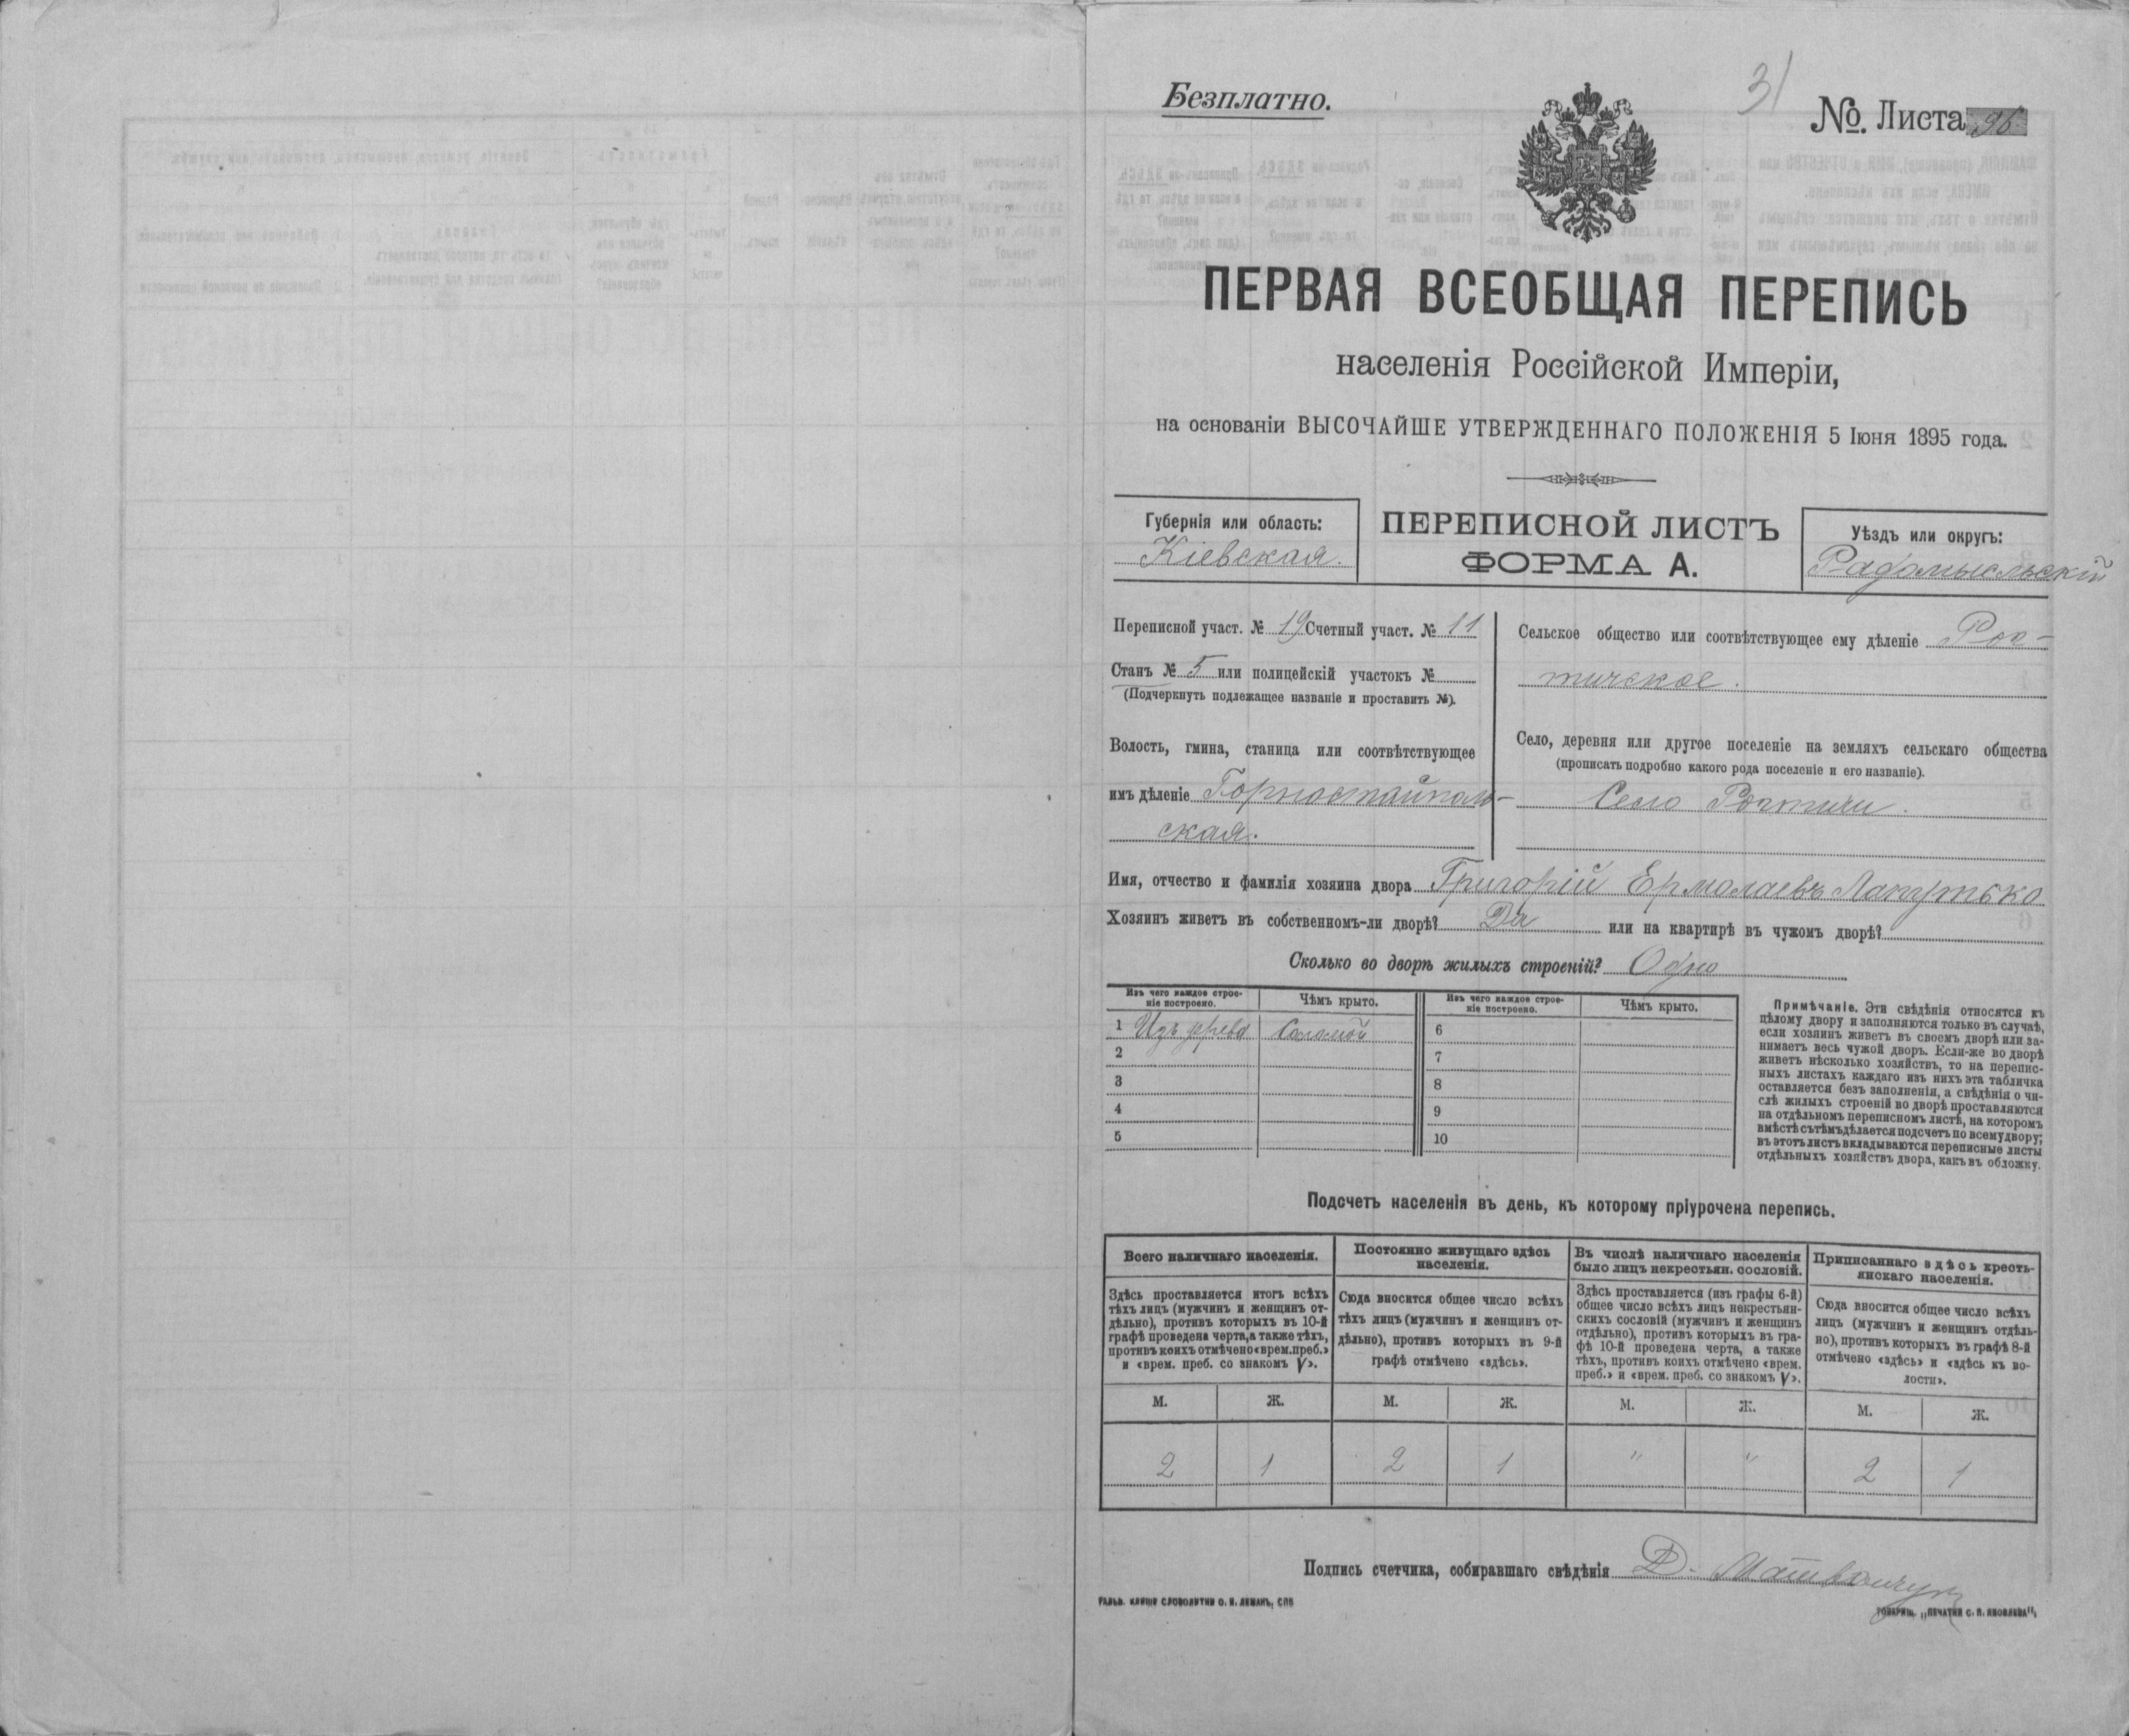 31
Безплатно.
№. Листа 96
ПЕРВАЯ ВСЕОБЩАЯ ПЕРЕПИСЬ
населенія Россійской Имперіи,
на основаніи ВЫСОЧАЙШЕ УТВЕРЖДЕННАГО ПОЛОЖЕНІЯ 5 Іюня 1895 года.
Губернія или область:
Кіевская.
ПЕРЕПИСНОЙ ЛИСТЪ
ФОРМА А.
Уѣздъ или округъ:
Радомысльскій
Переписной участ. № 19 Счетный участ. № 11
Станъ № 5 или полицейскій участокъ №
(Подчеркнуть подлежащее названіе и проставить №).
Волость, гмина, станица или соотвѣтствующее
имъ дѣленіе Горностайполь-
ская.
Сельское общество или соотвѣтствующее ему дѣленіе
тичское.
Село, деревня или другое поселеніе на земляхъ сельскаго общества
(прописать подробно какого рода поселеніе и его названіе).
Село
Имя, отчество и фамилія хозяина двора Григорій Ермолаевъ Лапутько
Хозяинъ живетъ въ собственномъ-ли дворѣ? Да или на квартирѣ въ чужомъ дворѣ?
Сколько во дворѣ жилыхъ строеній? Одно
Изъ чего каждое строе-
ніе построено.
Чѣмъ крыто.
Изъ чего каждое строе-
ніе построено.
Чѣмъ крыто.
1 Изъ древа Соломой 6
2 7
3 8
4 9
5 10
Примѣчаніе. Эти свѣдѣнія относятся къ
цѣлому двору и заполняются только въ случаѣ,
если хозяинъ живетъ въ своемъ дворѣ или за-
нимаетъ весь чужой дворъ. Если-же во дворѣ
живетъ нѣсколько хозяйствъ, то на перепис-
ныхъ листахъ каждаго изъ нихъ эта табличка
оставляется безъ заполненія, а свѣдѣнія о чи-
слѣ жилыхъ строеній во дворѣ проставляются
на отдѣльномъ переписномъ листѣ, на которомъ
вмѣстѣ съ тѣмъ дѣлается подсчетъ по всему двору;
въ этотъ листъ вкладываются переписные листы
отдѣльныхъ хозяйствъ двора, какъ въ обложку.
Подсчетъ населенія въ день, къ которому пріурочена перепись.
Всего наличнаго населенія.
Здѣсь проставляется итогъ всѣхъ
тѣхъ лицъ (мужчинъ и женщинъ от-
дѣльно), противъ которыхъ въ 10-й
графѣ проведена черта, а также тѣхъ,
противъ коихъ отмѣчено «врем. преб.»
и «врем. преб. со знакомъ V».
Постоянно живущаго здѣсь
населенія.
Сюда вносится общее число всѣхъ
тѣхъ лицъ (мужчинъ и женщинъ от-
дѣльно), противъ которыхъ въ 9-й
графѣ отмѣчено «здѣсь».
Въ числѣ наличнаго населенія
было лицъ некрестьян. сословій.
Здѣсь проставляется (изъ графы 6-й)
общее число всѣхъ лицъ некрестьян-
скихъ сословій (мужчинъ и женщинъ
отдѣльно), противъ которыхъ въ гра-
фѣ 10-й проведена черта, а также
тѣхъ, противъ коихъ отмѣчено «врем.
преб.» и «врем. преб. со знакомъ V».
Приписаннаго здѣсь кресть-
янскаго населенія.
Сюда вносится общее число всѣхъ
лицъ (мужчинъ и женщинъ отдѣль-
но), противъ которыхъ въ графѣ 8-й
отмѣчено «здѣсь» и «здѣсь къ во-
лости».
М. Ж. М. Ж. М. Ж. М. Ж.
2 1 2 1 " " 2 1
Подпись счетчика, собиравшаго свѣдѣнія Д.
ГАЛЬВ. КЛИШЕ СЛОВОЛИТНИ О. И. ЛЕМАНЪ, СПБ
ТОВАРИЩ. „ПЕЧАТНИ С. П. ЯКОВЛЕВА“,